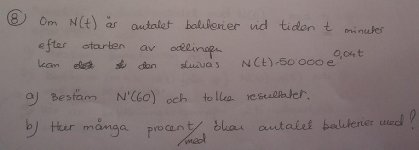 ⑧ Om N(t) är antalet bakterier vid tiden t minuter
efter starten av odlingen
kan den skrivas N(t)=50 000e^0,04t
a) Bestäm N'(60) och tolka resultatet.
b) Hur många procent/med ökar antalet bakterier med?